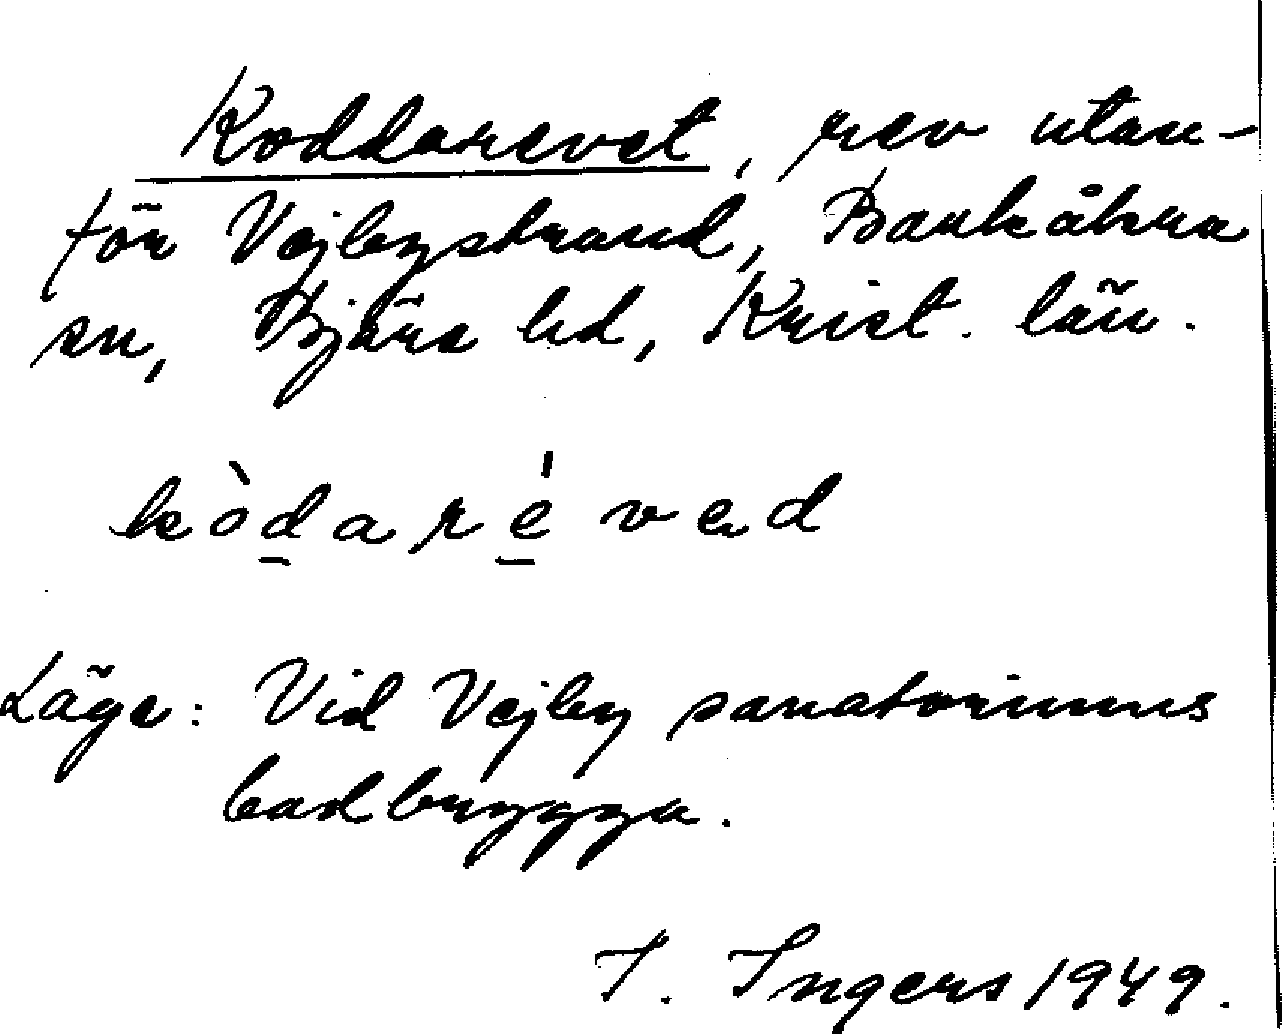 Koddarevet, rev utan-
för Vejbystrand, Barkåkra
sn, Bjäre hd, Krist. län.
kòdarévad
Läge: Vid Vejby sanatoriums
badbrygga.
I. Ingers 1949.